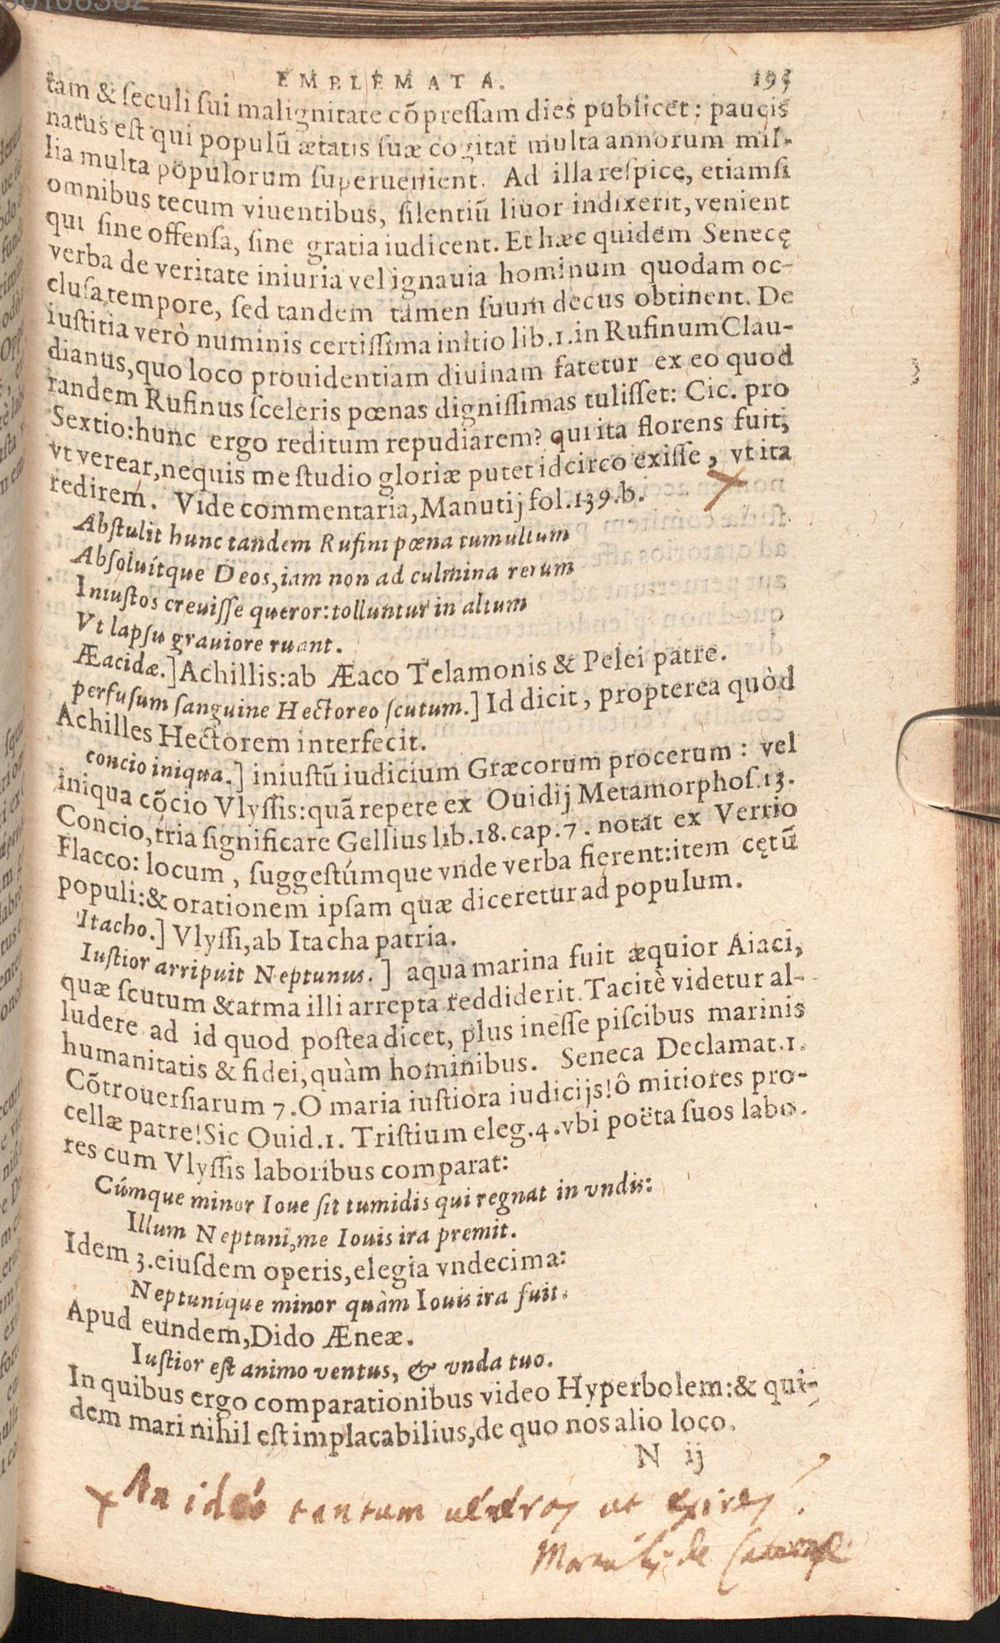 EMBLEMATA. 195
tam & ſeculi ſui malignitate cõpreſſam dies publicet: paucis
natus eſt qui populũ ætatis ſuæ cogitat multa annorum mil-
lia multa populorum ſuperuenient. Ad illa reſpice, etiamſi
omnibus tecum viuentibus, ſilentiũ liuor indixerit, venient
qui ſine offenſa, ſine gratia iudicent. Et hæc quidem Senecę
verba de veritate iniuria vel ignauia hominum quodam oc-
cluſa tempore, ſed tandem tamen ſuum decus obtinent. De
iuſtitia verò numinis certiſſima initio lib.1.in Rufinum Clau-
dianus, quo loco prouidentiam diuinam fatetur ex eo quod
tandem Rufinus ſceleris pœnas digniſſimas tuliſſet: Cic. pro
Sextio: hunc ergo reditum repudiarem? qui ita florens fuit,
vt verear, nequis me ſtudio gloriæ putet idcirco exiſſe, vt ita
redirem. Vide commentaria, Manutij fol.139.b.
Abſtulit hunc tandem Rufini pœna tumultum
Abſoluítque Deos, iam non ad culmina rerum
Iniuſtos creuiſſe queror: tolluntur in altum
Vt lapſu grauiore ruant.
Æacidæ.] Achillis: ab Æaco Telamonis & Pelei patre.
perfuſum ſanguine Hectoreo ſcutum.] Id dicit, propterea quòd
Achilles Hectorem interfecit.
concio iniqua.] iniuſtũ iudicium Græcorum procerum: vel
iniqua cõcio Vlyſſis: quã repete ex Ouidij Metamorphoſ.13.
Concio, tria ſignificare Gellius lib.18.cap.7. notat ex Verrio
Flacco: locum, ſuggeſtúmque vnde verba fierent: item cętũ
populi: & orationem ipſam quæ diceretur ad populum.
Itacho.] Vlyſſi, ab Itacha patria.
Iuſtior arripuit Neptunus.] aqua marina fuit æquior Aiaci,
quæ ſcutum & arma illi arrepta reddiderit. Tacitè videtur al-
ludere ad id quod poſtea dicet, plus ineſſe piſcibus marinis
humanitatis & fidei, quàm hominibus. Seneca Declamat.1.
Cõtrouerſiarum 7. O maria iuſtiora iudicijs! ô mitiores pro-
cellæ patre! Sic Ouid.1. Triſtium eleg.4. vbi poëta ſuos labo-
res cum Vlyſſis laboribus comparat:
Cúmque minor Ioue ſit tumidis qui regnat in vndis:
Illum Neptuni, me Iouis ira premit.
Idem 3. eiuſdem operis, elegia vndecima:
Neptunique minor quàm Iouis ira fuit.
Apud eundem, Dido Æneæ.
Iuſtior eſt animo ventus, & vnda tuo.
In quibus ergo comparationibus video Hyperbolem: & qui-
dem mari nihil eſt implacabilius, de quo nos alio loco.
N ij
An ideó tantum ut exires?
de